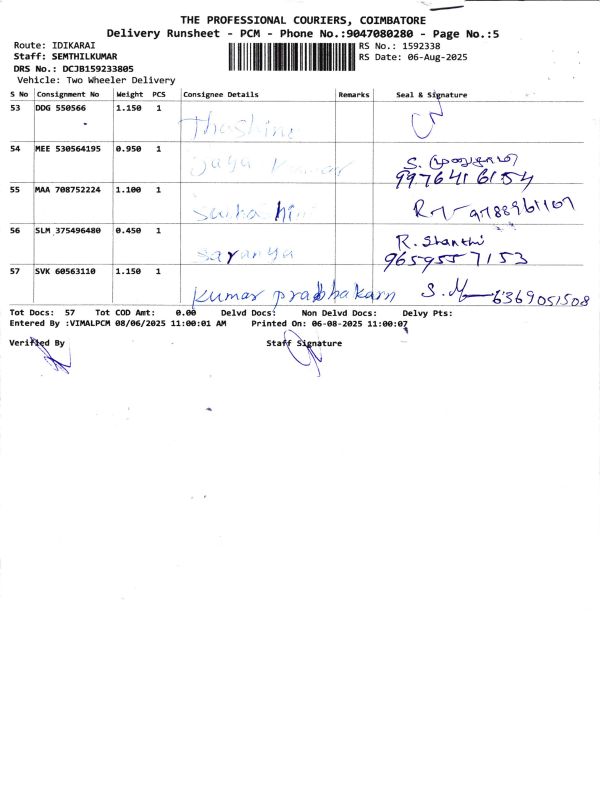 THE PROFESSIONAL COURIERS, COIMBATORE
Delivery Runsheet - PCM - Phone No.:9047080280 - Page No.:5
Route: IDIKARAI RS No.: 1592338
Staff: SEMTHILKUMAR RS Date: 06-Aug-2025
DRS No.: DCJB159233805
Vehicle: Two Wheeler Delivery
S No Consignment No Weight PCS Consignee Details Remarks Seal & Signature
53 DDG 550566 1.150 1 Thashine
54 MEE 530564195 0.950 1 Jaya Kumar S.
9976416154
55 MAA 708752224 1.100 1 9788961107
56 SLM 375496480 0.450 1 Saranya R. Shanthi
9659557153
57 SVK 60563110 1.150 1 Kumar prabhakarn S. 6369051508
Tot Docs: 57 Tot COD Amt: 0.00 Delvd Docs: Non Delvd Docs: Delvy Pts:
Entered By :VIMALPCM 08/06/2025 11:00:01 AM Printed On: 06-08-2025 11:00:07
Verified By Staff Signature